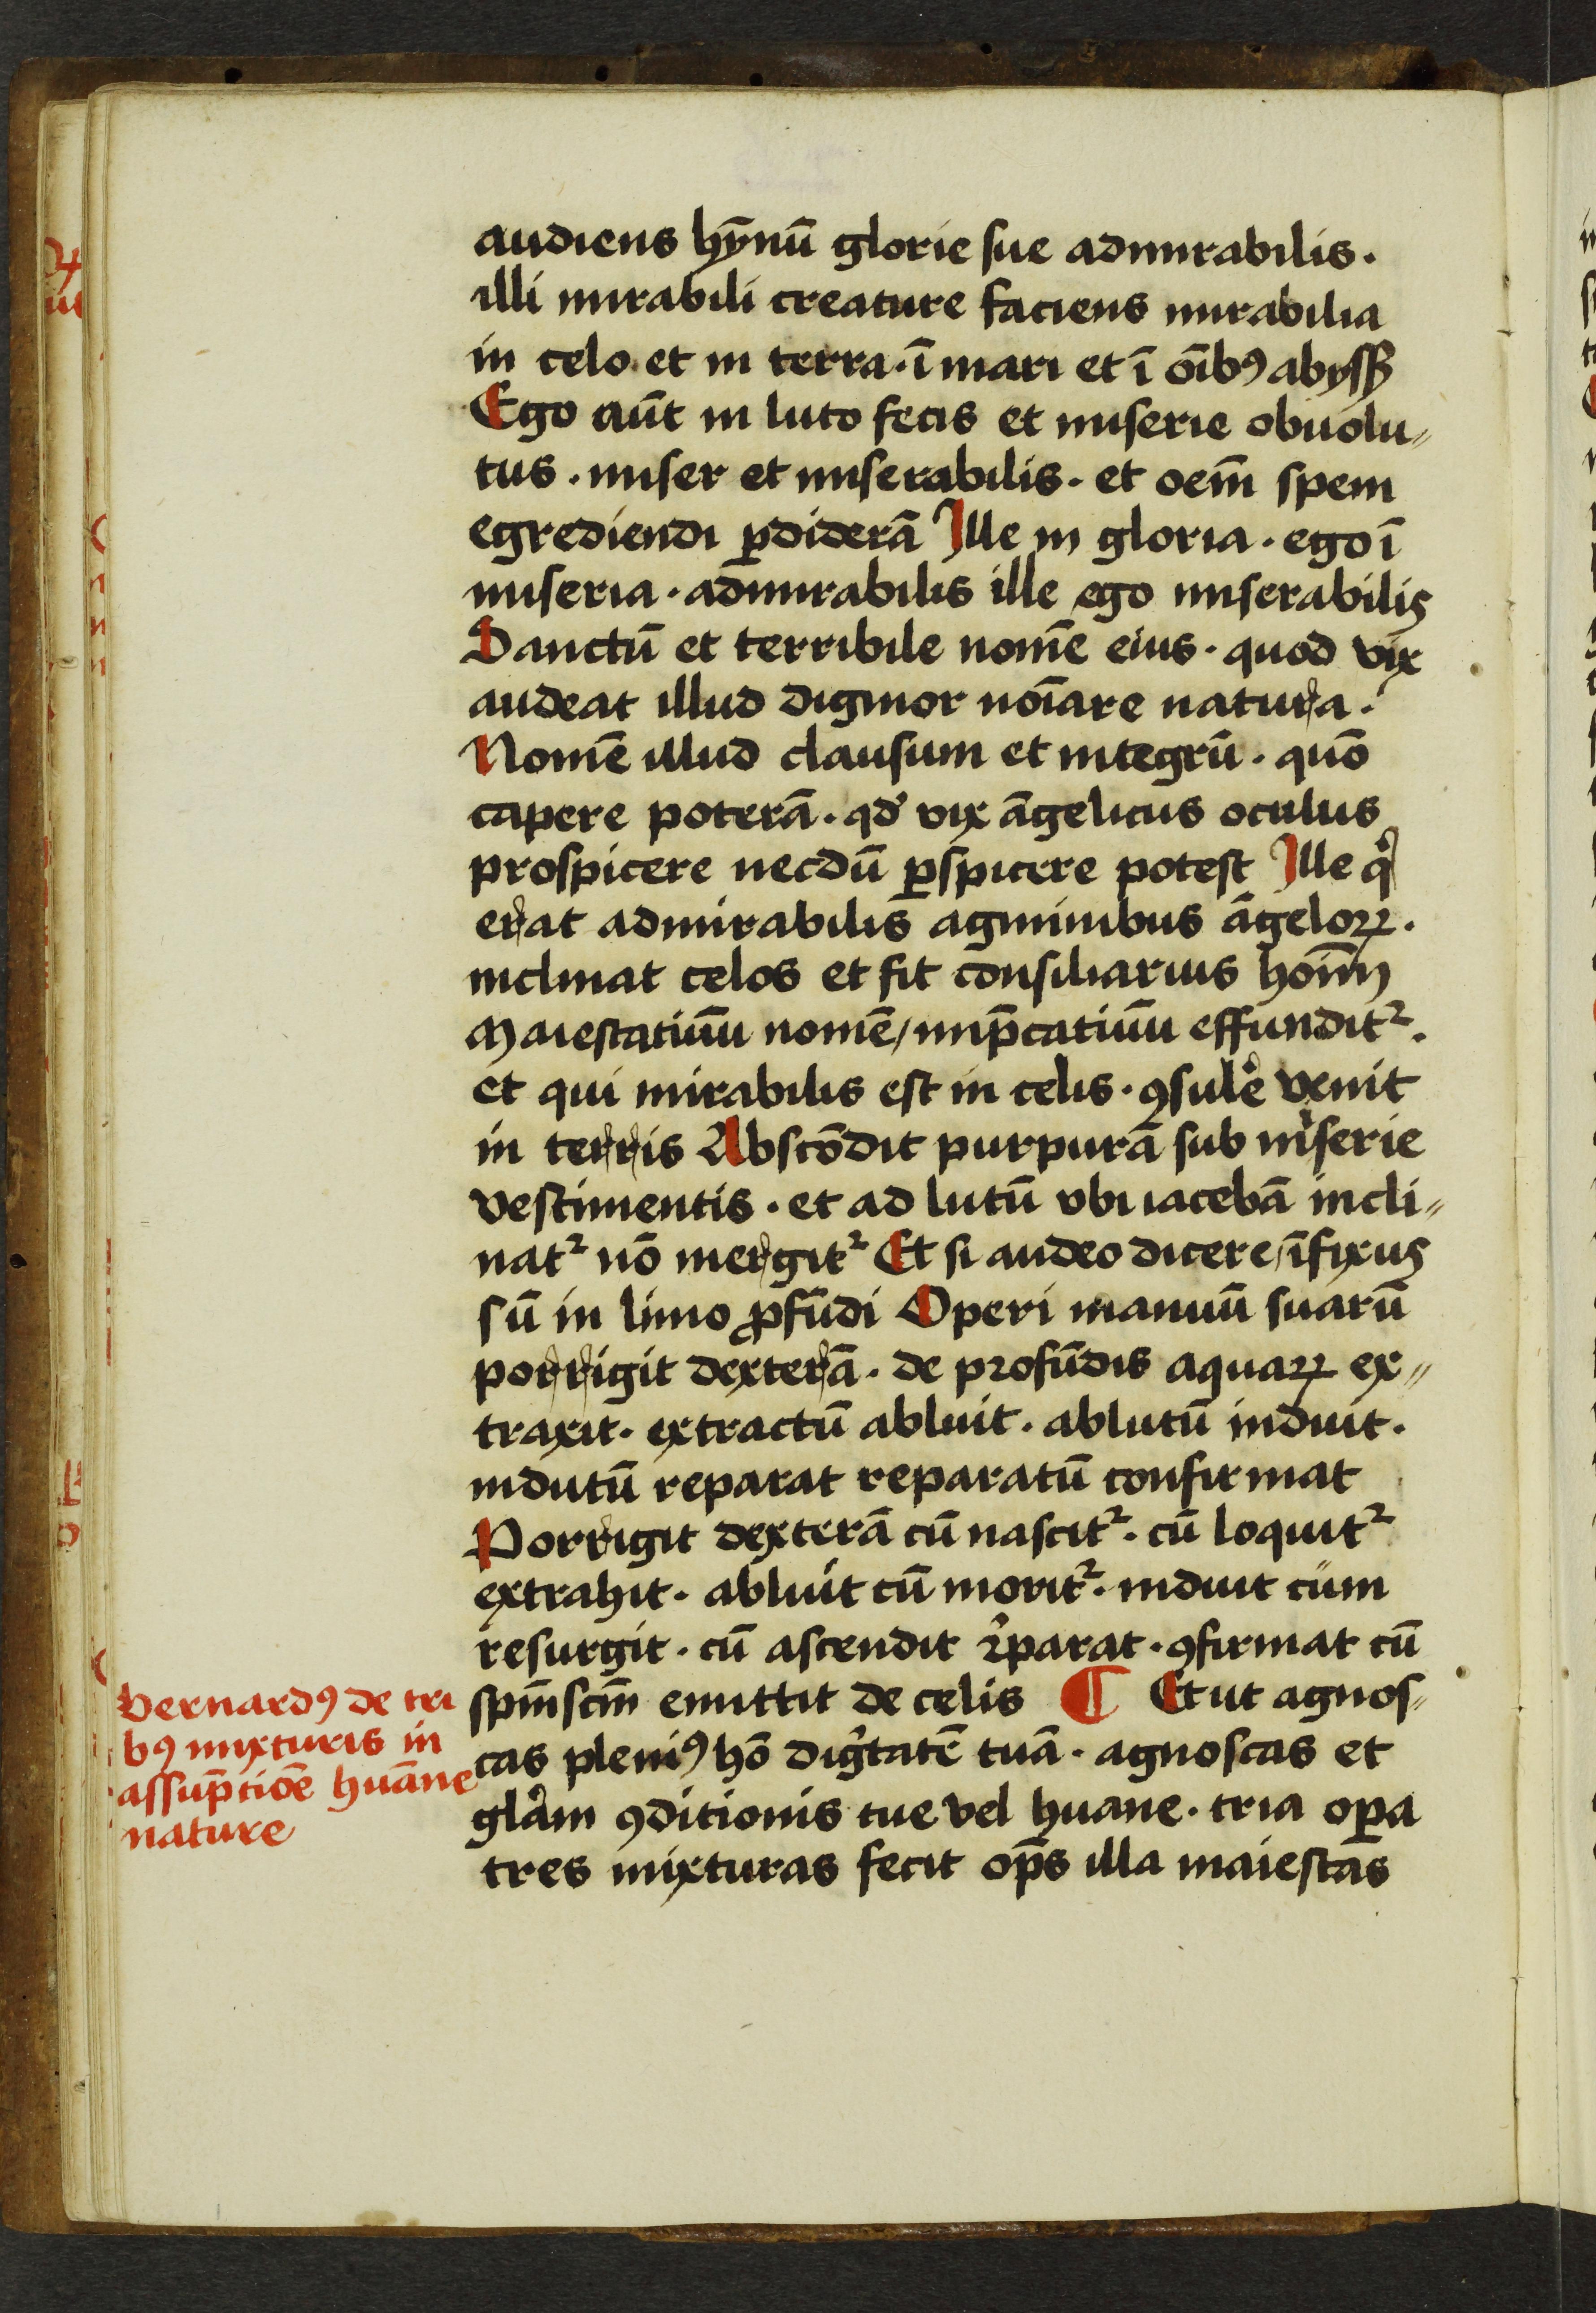 audiens hỹnū glorie sue admirabilis.
illi mirabili creature faciens mirabilia
in celo et in terra. ī mari et ī oībꝯ abyssꝭ
Ego aūt in luto fecis et miserie obuolu„
tus. miser et miserabilis. et oem̄ spem
egrediendi ꝑdiderā Ille in gloria. ego ī
miseria. admirabilis ille ego miserabilis
Sanctū et terribile nomē eius. quod vix
audeat illud dignior noīare natura.
Nomē illud clausum et integrū. quō
capere poterā. qd' vix āgelicus oculus
prospicere necdū ꝑspicere potest Ille qͥ
erat admirabilis agminibus āgeloꝝ.
inclinat celos et fit consiliarius hoīm
Maiestatiuū nomē / imp̄catiuū effunditᷣ.
et qui mirabilis est in celis. ꝯsule͛ venit
in terris Abscōdit purpurā sub miserie
vestimentis. et ad lutū vbi iacebā incli„
natᷣ nō mergitᷣ Et si audeo dicere / īfixus
sū in limo ꝓfūdi Operi manuū suarū
porrigit dexterā. de profūdis aquaꝝ ex„
traxit. extractū abluit. ablutū induit.
indutū reparat reparatū confirmat
Porrigit dexterā cū nascitᷣ. cū loquitᷣ
extrahit. abluit cū moritᷣ. induit cum
resurgit. cū ascendit r͛parat. ꝯfirmat cū
spm̄scm̄ emittit de celis ¶ Et ut agnos„
cas pleniꝯ hō digͥtatē tuā. agnoscas et
gl'am ꝯditionis tue vel huāne. tria oꝑa
tres mixturas fecit op̄s illa maiestas
Bernardꝯ de tri
bꝯ mixturis in
assūptiōe huāne
nature